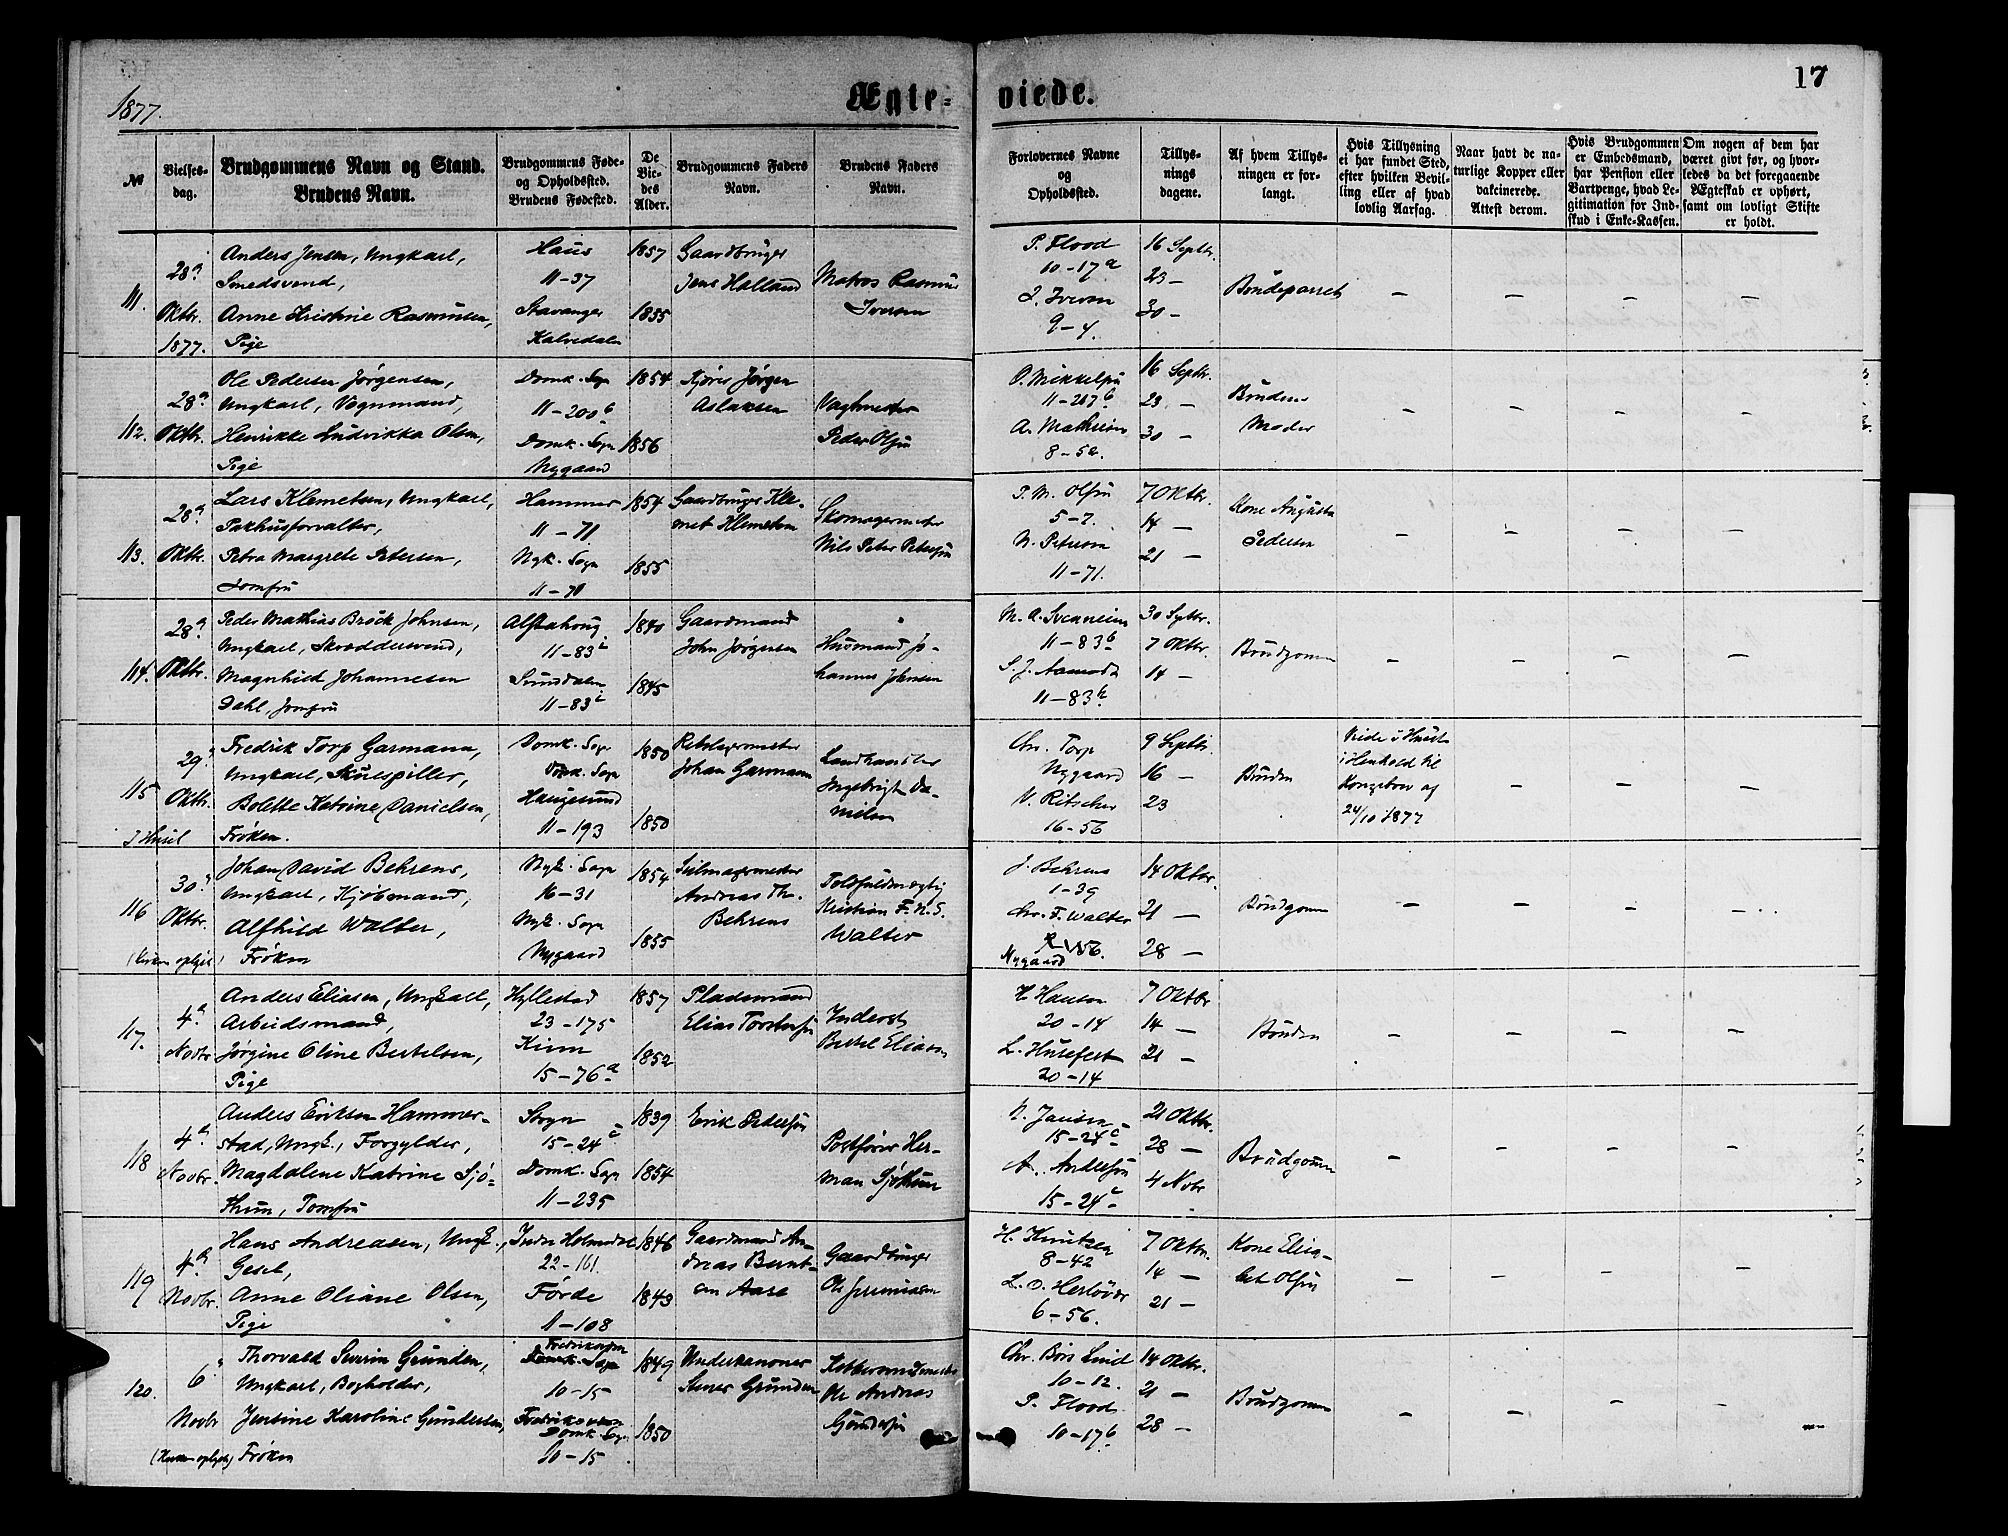 17
1877.
Ægte-viede.
№
Vielses-dag.
Brudgommens Navn og Stand.
Brudens Navn.
Brudgommens Føde-
og Opholdssted.
Brudens Fødested.
De
Vie-
des
Alder.
Brudgommens Faders
Navn.
Brudens Faders
Navn.
Forlovernes Navne
og
Opholdssted.
Tillys-
nings
dagene.
Af hvem Tillys-
ningen er for-
langt.
Hvis Tillysning
ei har fundet Sted,
efter hvilken Bevil-
ling eller af hvad
lovlig Aarsag.
Naar havt de na-
turlige Kopper eller
vakcinerede.
Attest derom.
Hvis Brudgommen
er Embedsmand,
har Pension eller
Vartpenge, hvad Le-
gitimation for Ind-
skud i Enke-Kassen.
Om nogen af dem har
været givt før, og hvor-
ledes da det foregaaende
Ægteskab er ophørt,
samt om lovligt Skifte
er holdt.
111.
28de
Oktbr.
1877.
Anders Jensen, Ungkarl,
Smedsvend,
Anne Kristine Rasmusen,
Pige
Haus
11-37
Stavanger
Kalvedalen
1857
1855
Gaardbruger
Jens Halland
Matros Rasmus
Iversen
P. Flood
10-17a
I. Iversen
9-4.
16 Septbr.
23 —
30 —
Brudeparret
— — — —
112.
28de
Oktbr.
Ole Pedersen Jørgensen,
Ungkarl, Vognmand,
Henrikke Ludvikka Olsen,
Pige
Domk. Sogn
11-200b
Domk. Sogn
Nygaard
1854
1856
Kjører Jørgen
Aslaksen
Vagtmester
Peder Olsen
O. Mikkelsen
11-207b
A. Mathiesen
8-52.
16 Septbr.
23 —
30 —
Brudens
Moder
— — — —
113.
28de
Oktbr.
Lars Klemetsen, Ungkarl,
Pakhusforvalter,
Petra Margrete Petersen,
Jomfru
Hammer
11-71
Nyk. Sogn
11-71
1854
1855
Gaardbruger Kle-
met Klemetsen
Skomagermester
Nils Peter Petersen
P. M. Olsen
5-7.
N. Petersen
11-71.
7 Oktbr.
14 —
21 —
Kone Augusta
Pedersen
— — — —
114.
28de
Oktbr.
Peder Mathias Brock Johnsen,
Ungkarl, Skræddersvend,
Magnhild Johannesen
Dahl, Jomfru
Alstahoug
11-83
Sundalen
11-83
1840
1845
Gaardmand
John Jørgensen
Husmand Jo-
hannes Johnsen
11-83b
S. J. Aamodt
11-83b
30 Septbr.
7 Oktbr.
14 —
Brudgommen
— — — —
115
29de
Oktbr.
I Huset
Fredrik Torp Garmann,
Ungkarl, Skuespiller,
Bolette Katrine Danielsen,
Frøken.
Domk. Sogn
Domk. Sogn
Haugesund
11-193
1850
1850
Rebslagermester
Johan Garmann
Landhandler
Ingebrigt Da-
nielsen
Chr. Torp
Nygaard
V. Ritscher
16-56
9 Septbr.
16 —
23
Bruden
Viede i Huset
i Henhold til
Kongebrev af
24/10 1877
— — —
116
30te
Oktbr.
(Kirken oplyst)
Johan David Behrens,
Ungkarl, Kjøbmand,
Alfhild Walter,
Frøken
Nyk. Sogn
16-31
Nyk. Sogn
Nygaard
1854
1855
Seilmagermester
Andreas Th.
Behrens
Toldfuldmægtig
Kristian F. N. S.
Walter
J. Behrens
1-39
Chr. F. Walter
Nygaard
14 Oktbr.
21 —
28 —
Brudgommen
— — — —
117.
4de
Novbr
Anders Eliasen, Ungkarl,
Arbeidsmand,
Jørgine Oline Bertelsen,
Pige
Hyllestad
23-175
Kinn
15-76a
1857
1852
Pladsmand
Elias Torstensen
Inderst
Bertel Eliasen
H. Hansen
20-14
L. Husefest
20-14
7 Oktbr
14 —
21 —
Bruden
— — — —
118
4de
Novbr.
Anders Eriksen Hammer-
stad, Ungk., Forgylder,
Magdalene Katrine Sjø-
thun, Jomfru
Sogn
15-24c
Domk. Sogn
11-235
1839
1854
Erik Pedersen
Postfører Her-
man Sjøthun
N. Jansen
15-24c
A. Andersen
15-24c
21 Oktbr.
28 —
4 Novbr
Brudgommen
— — — —
119
4de
Novbr.
Hans Andreasen, Ungk.,
Gesel,
Anne Oliane Olsen,
Pige
Indre Holmedal
22-161.
Førde
11-108
1846
1843
Gaardmand An-
dreas Bernt-
sen Aase
Gaardbruger
Ole Jeremiasen
H. Knutzen
8-42
6-56.
7 Oktbr.
14 —
21 —
Kone Elisa-
bet Olsen
— — — —
120.
6te
Novbr
(Kirken oplyst)
Thorvald Severin Grunden,
Ungkarl, Bogholder,
Jensine Karoline Gundersen,
Frøken
Fredrikshavn
Domk. Sogn
10-15
Fredriksværn
Domk. Sogn
10-15
1849
1850
Underkanoner
Stener Grunden
Kattunsmedmester
Ole Andreas
Gundersen
Chr. Børs Lind
10-12.
P. Flood
10-17b
14 Oktbr.
21 —
28 —
Brudgommen
— — — —